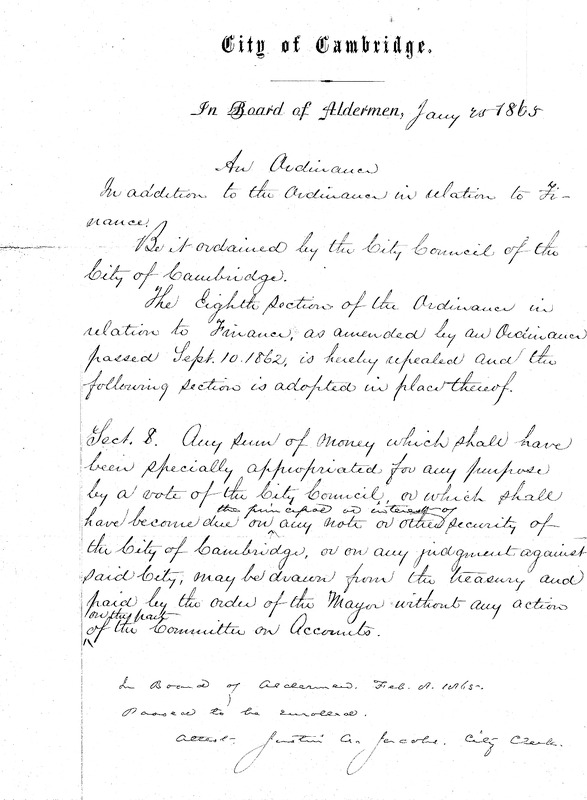 City of Cambridge.
In Board of Aldermen, Jany 25 1865
An Ordinance
In addition to the Ordinance in relation to Fi-
nance.
Be it ordained by the City Council of the
City of Cambridge.
The Eighth section of the Ordinance in
relation to Finance, as amended by an Ordinance
passed Sept. 10. 1862, is hereby repealed and the
following section is adopted in place thereof.
Sect. 8. Any sum of money which shall have
been specially appropriated for any purpose
by a vote of the City Council, or which shall
the principal or interest of
have become due on any note or other security of
the City of Cambridge, or on any judgment against
said City, may be drawn from the treasury and
paid by the order of the Mayor without any action
on the part
of the Committee on Accounts.
In Board of Aldermen. Feb. 8. 1865.
Passed to be enrolled.
Attest. Justin A. Jacobs. City Clerk.